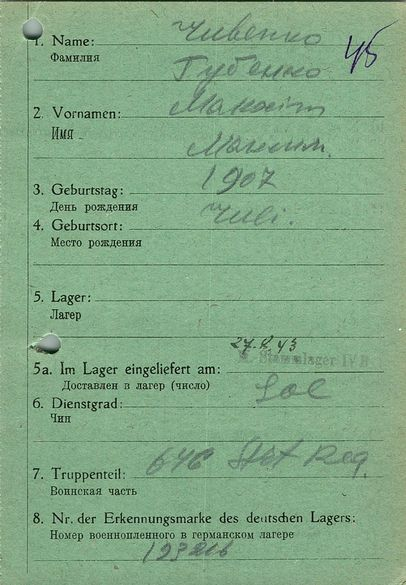 1. Name: Чивенко
Фамилия Губенко
45
2. Vornamen: Maxim
Имя Максим.
3. Geburtstag: 1907
День рождения
4. Geburtsort:
Место рождения
5. Lager:
Лагер
27. 2. 43
Stammlager IV B
5a. Im Lager eingeliefert am:
Доставлен в лагер (число)
6. Dienstgrad: Sol
Чин
7. Truppenteil: 646 Reg.
Воинская часть
8. Nr. der Erkennungsmarke des deutschen Lagers:
Номер военнопленного в германском лагере